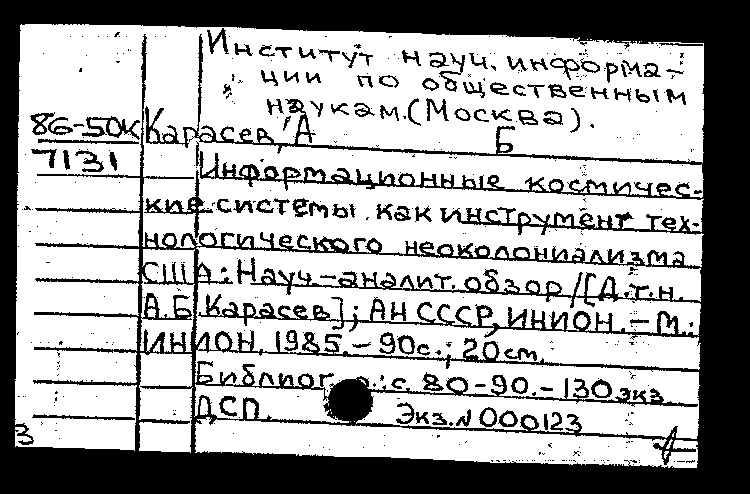 Институт науч. информа-
ции по общественным
наукам. (Москва).
86-50к Карасев, А Б
7131
Информационные космичес-
кие системы как инструмент тех-
нологического неоколониализма
США: Науч.-аналит. обзор / [Д.т.н.
А.Б Карасев]; АН СССР, ИНИОН. - М.:
ИНИОН, 1985. - 90с.; 20см.
Библиогр.: с. 80-90. - 130 экз
ДСП. Экз. № 000123
3